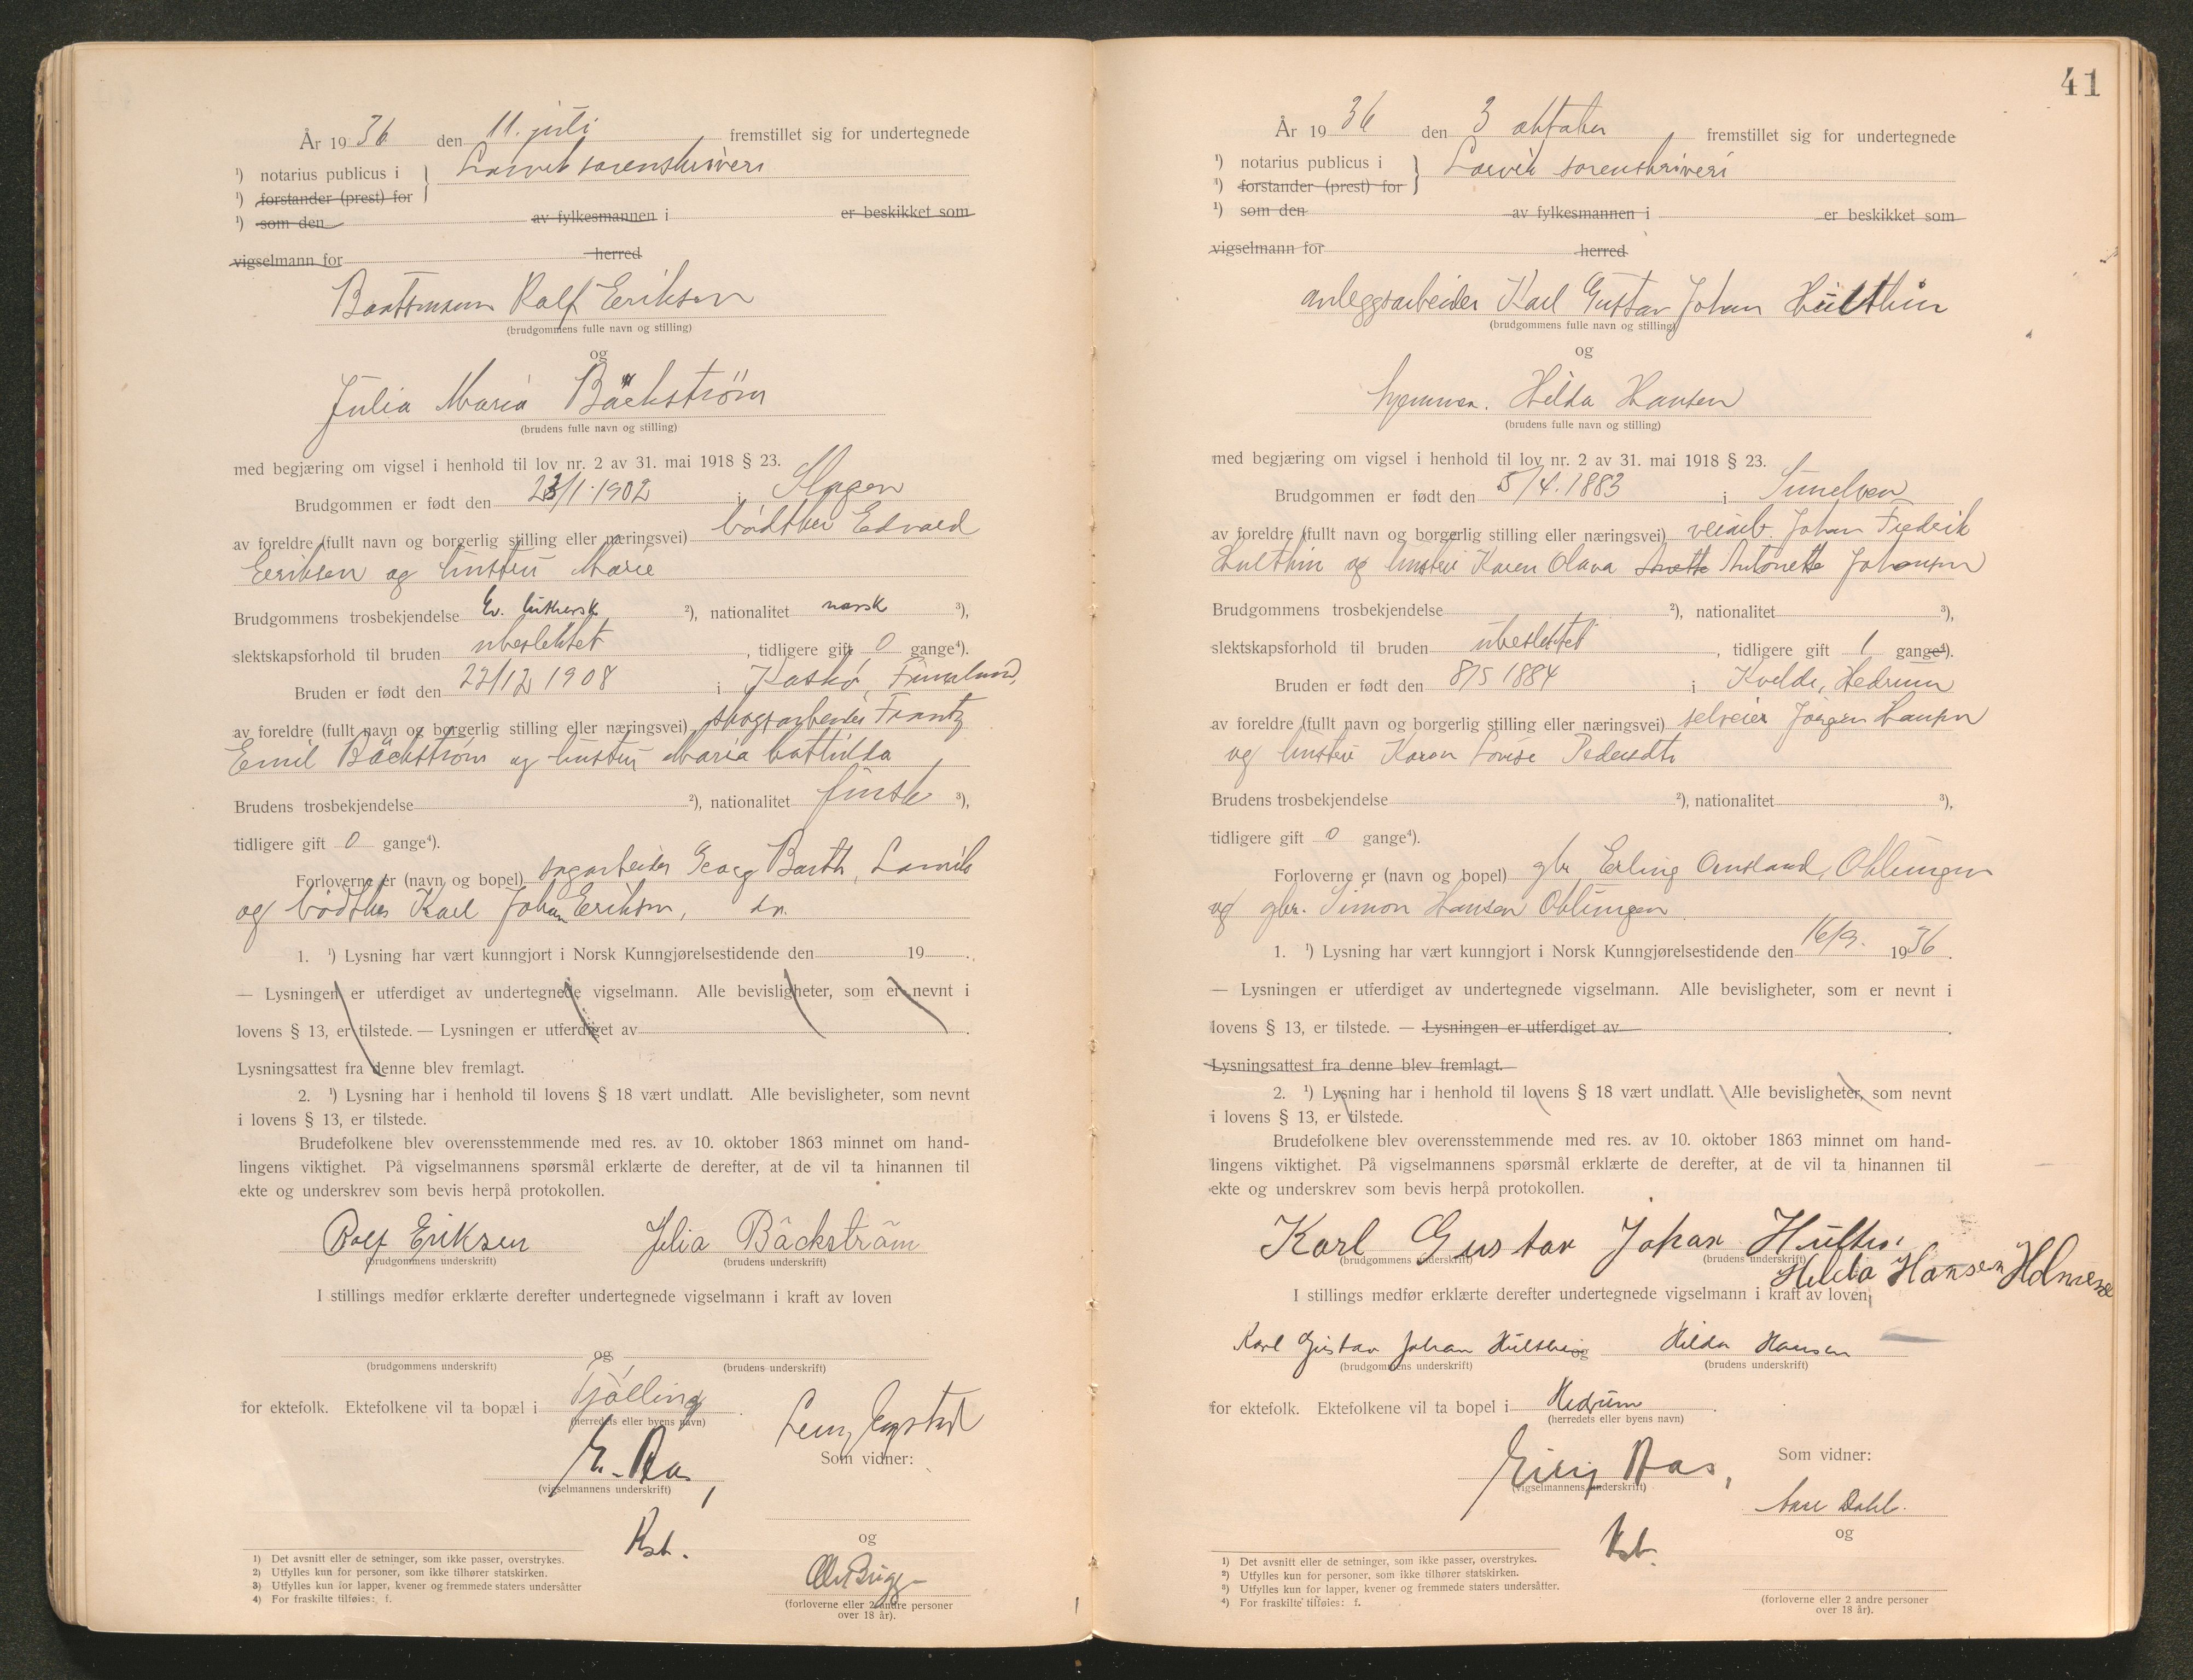 År 1936 den 11. juli fremstillet sig for undertegnede
¹) notarius publicus i } Larvik sorenskriveri
¹) forstander (prest) for
¹) som den av fylkesmannen i er beskikket som
vigselmann for herred
Baatsmann Rolf Eriksen
(brudgommens fulle navn og stilling)
og
Julia Maria Bäckstrøm
(brudens fulle navn og stilling)
med begjæring om vigsel i henhold til lov nr. 2 av 31. mai 1918 § 23.
Brudgommen er født den 23/1.1902 i Slagen
av foreldre (fullt navn og borgerlig stilling eller næringsvei) bødtker Edvard
Eeriksen og hustru Marie
Brudgommens trosbekjendelse Ev. luthersk ²), nationalitet norsk ³),
slektskapsforhold til bruden ubeslektet, tidligere gift 0 gange⁴).
Bruden er født den 22/12 1908 i Kaskø, Finnland,
av foreldre (fullt navn og borgerlig stilling eller næringsvei) skogsarbeider Frantz
Emil Bäckstrøm og hustru Maria
Brudens trosbekjendelse ²), nationalitet finsk ³),
tidligere gift 0 gange⁴).
Forloverne er (navn og bopel) sagarbeider Georg Barth, Larvik
og bødtker Karl Johan Eriksen, do.
1. ¹) Lysning har vært kunngjort i Norsk Kunngjørelsestidende den 19 .
— Lysningen er utferdiget av undertegnede vigselmann. Alle bevisligheter, som er nevnt i
lovens § 13, er tilstede. — Lysningen er utferdiget av .
Lysningsattest fra denne blev fremlagt.
2. ¹) Lysning har i henhold til lovens § 18 vært undlatt. Alle bevisligheter, som nevnt
i lovens § 13, er tilstede.
Brudefolkene blev overensstemmende med res. av 10. oktober 1863 minnet om hand-
lingens viktighet. På vigselmannens spørsmål erklærte de derefter, at de vil ta hinannen til
ekte og underskrev som bevis herpå protokollen.
Rolf Eriksen Julia Bäckström
(brudgommens underskrift) (brudens underskrift)
I stillings medfør erklærte derefter undertegnede vigselmann i kraft av loven
og
(brudgommens underskrift) (brudens underskrift)
for ektefolk. Ektefolkene vil ta bopæl i Tjølling.
(herredets eller byens navn)
E. Aas,
Som vidner:
(vigselmannens underskrift)
og
(forloverne eller 2 andre personer
over 18 år).
1) Det avsnitt eller de setninger, som ikke passer, overstrykes.
2) Utfylles kun for personer, som ikke tilhører statskirken.
3) Utfylles kun for lapper, kvener og fremmede staters undersåtter
4) For fraskilte tilføies: f.
41
År 1936 den 3 oktober fremstillet sig for undertegnede
¹) notarius publicus i } Larvik sorenskriveri
¹) forstander (prest) for
¹) som den av fylkesmannen i er beskikket som
vigselmann for herred
anleggsarbeider Karl Gustav Johan Hulthin
(brudgommens fulle navn og stilling)
og
hjemmev. Hilda Hansen
(brudens fulle navn og stilling)
med begjæring om vigsel i henhold til lov nr. 2 av 31. mai 1918 § 23.
Brudgommen er født den 5/4.1883 i Sunelven
av foreldre (fullt navn og borgerlig stilling eller næringsvei) veiarb. Johan Fredrik
Hulthin og hustru Karen Olava Anette Antonette Johansen
Brudgommens trosbekjendelse ²), nationalitet ³),
slektskapsforhold til bruden ubeslektet, tidligere gift 1 gange⁴).
Bruden er født den 8/5 1884 i Kvelde, Hedrum
av foreldre (fullt navn og borgerlig stilling eller næringsvei) selveier Jørgen Hansen
og hustru Karen Lovise Pedersdtr
Brudens trosbekjendelse ²), nationalitet ³),
tidligere gift 0 gange⁴).
Forloverne er (navn og bopel) gbr. Erling Omsland, Odlingen
og gbr. Simon Hansen Odlingen.
1. ¹) Lysning har vært kunngjort i Norsk Kunngjørelsestidende den 16/9. 1936.
— Lysningen er utferdiget av undertegnede vigselmann. Alle bevisligheter, som er nevnt i
lovens § 13, er tilstede. — Lysningen er utferdiget av .
Lysningsattest fra denne blev fremlagt.
2. ¹) Lysning har i henhold til lovens § 18 vært undlatt. Alle bevisligheter, som nevnt
i lovens § 13, er tilstede.
Brudefolkene blev overensstemmende med res. av 10. oktober 1863 minnet om hand-
lingens viktighet. På vigselmannens spørsmål erklærte de derefter, at de vil ta hinannen til
ekte og underskrev som bevis herpå protokollen.
Karl Gustav Johan Hulthin
(brudgommens underskrift) (brudens underskrift)
Hilda Hansen Holmene
I stillings medfør erklærte derefter undertegnede vigselmann i kraft av loven
Karl Gustav Johan Hulthin og Hilda Hansen
(brudgommens underskrift) (brudens underskrift)
for ektefolk. Ektefolkene vil ta bopel i Hedrum.
(herredets eller byens navn)
Som vidner:
Erling Aas,
(vigselmannens underskrift)
Aase Dahl.
og
(forloverne eller 2 andre personer
over 18 år).
1) Det avsnitt eller de setninger, som ikke passer, overstrykes.
2) Utfylles kun for personer, som ikke tilhører statskirken.
3) Utfylles kun for lapper, kvener og fremmede staters undersåtter.
4) For fraskilte tilføies: f.